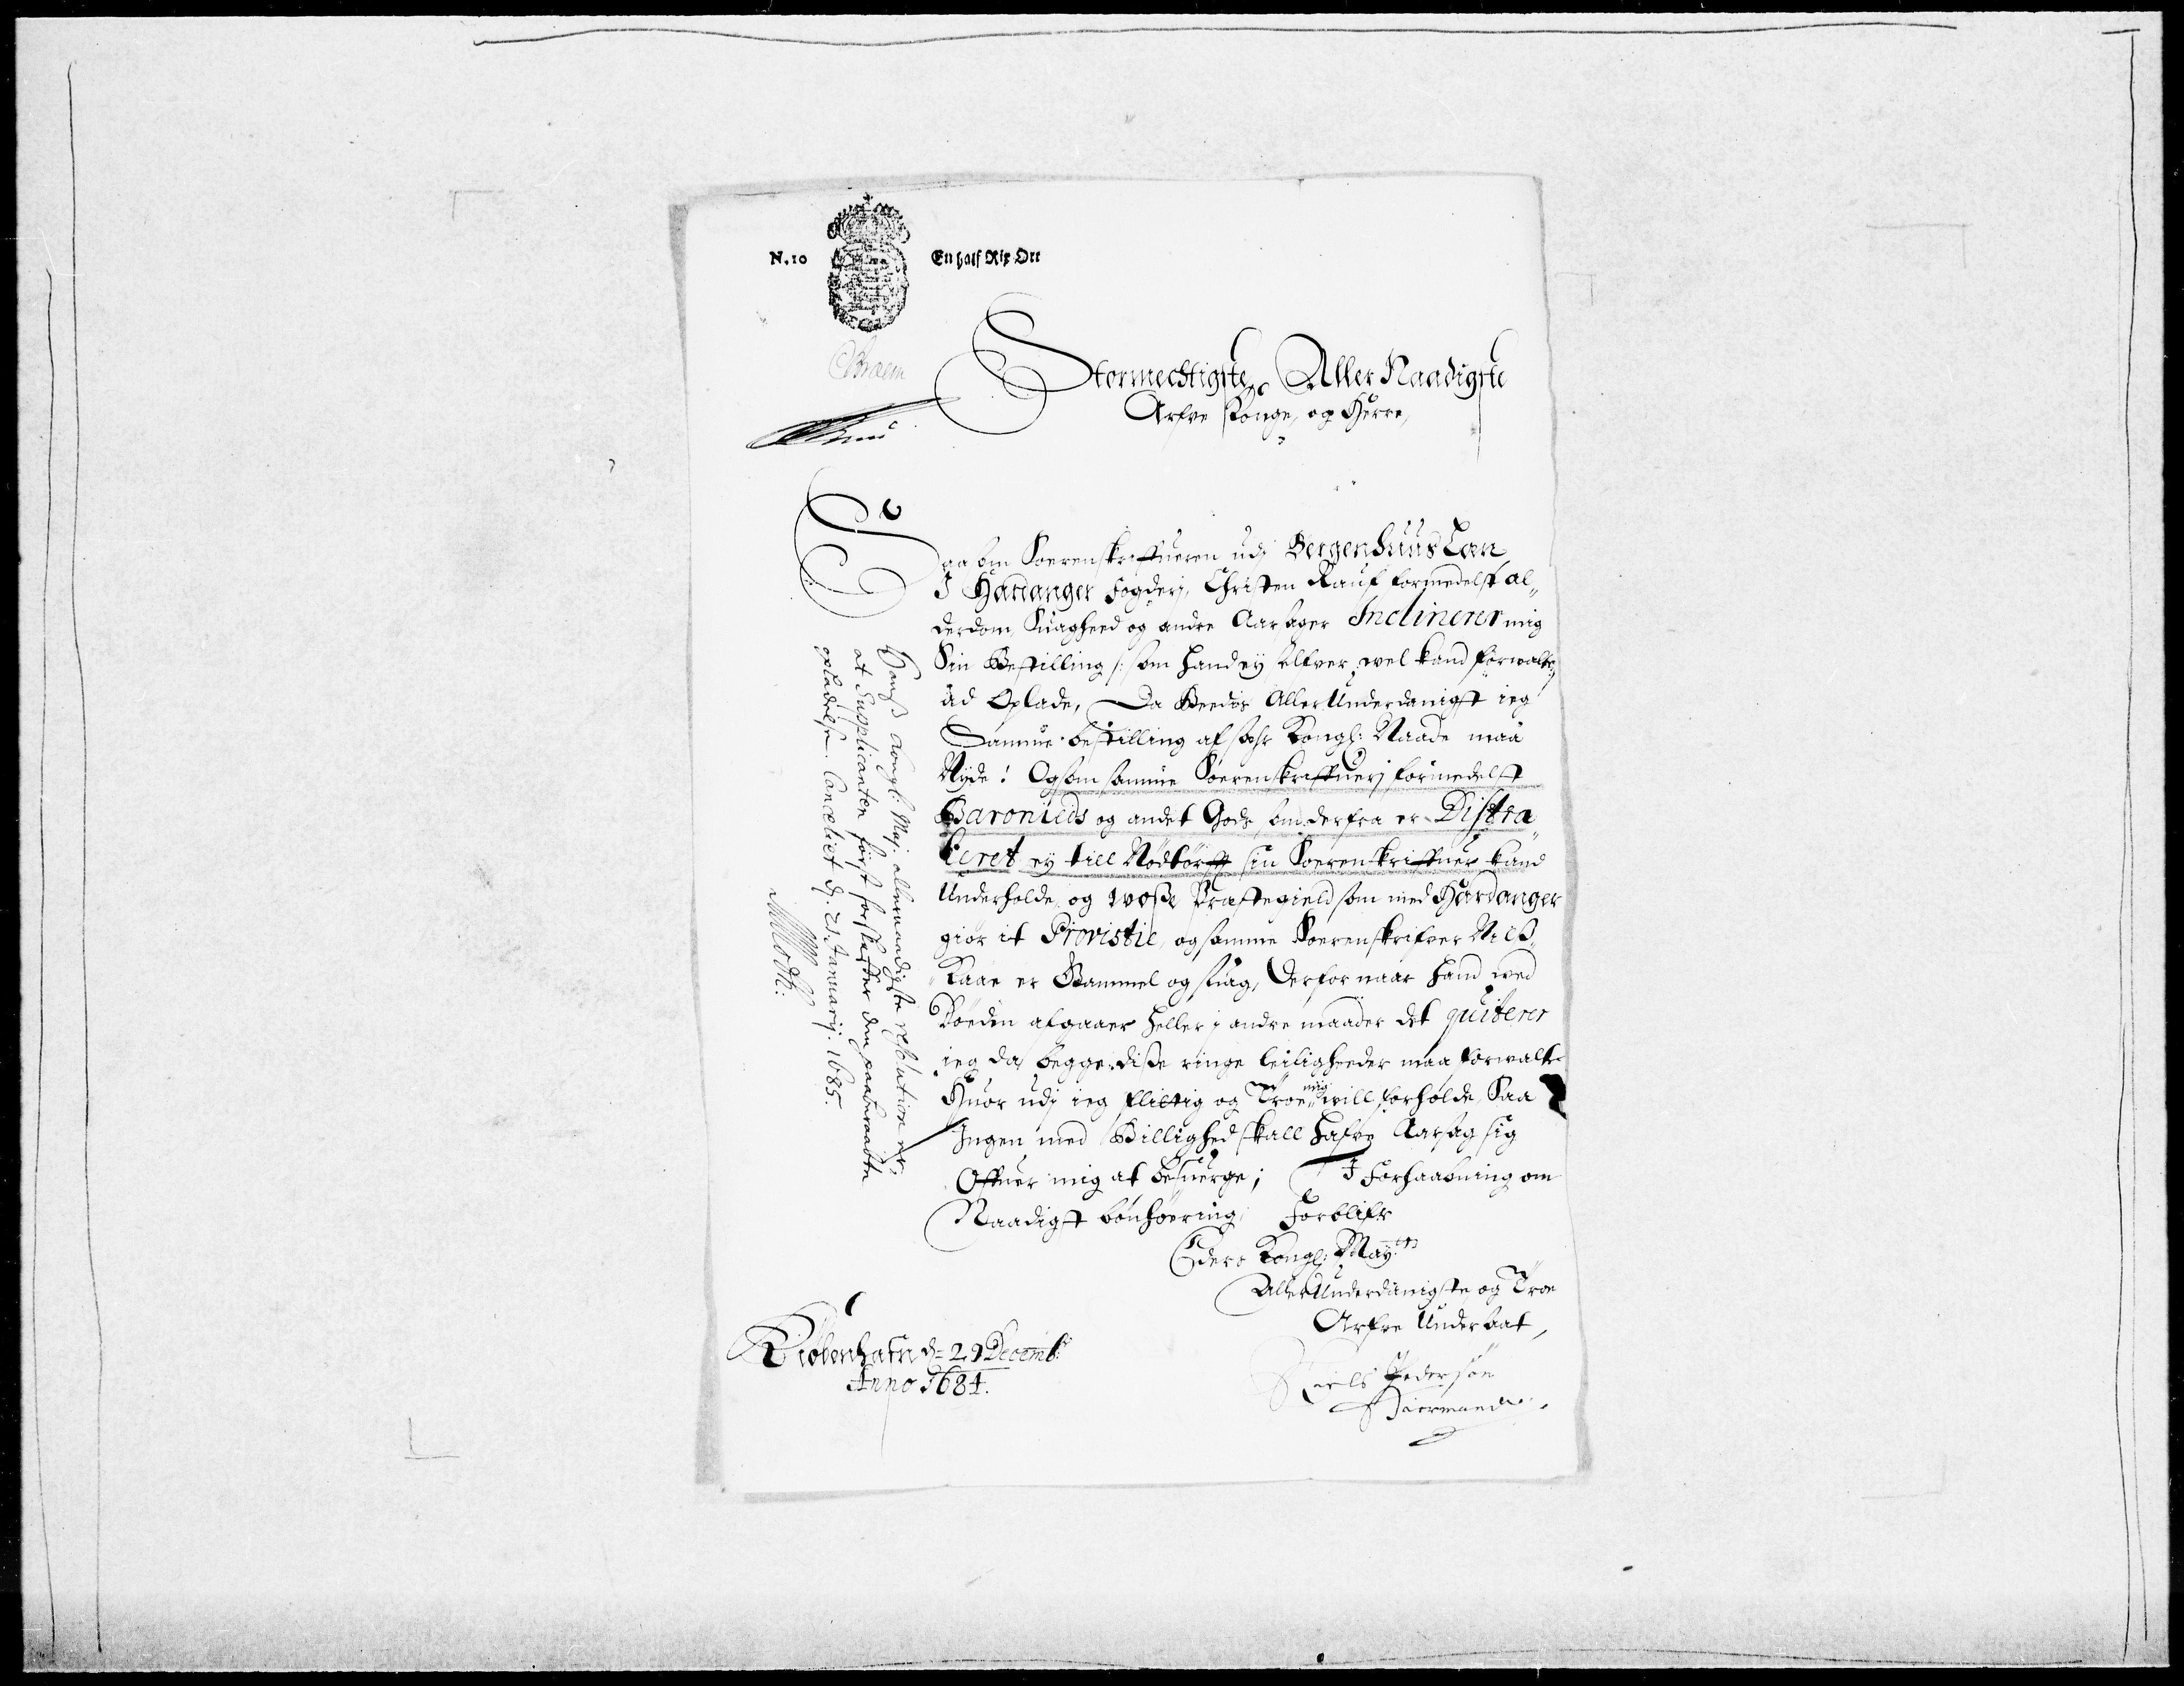 N. 10
En half Rix Ort
Braem
Stormechtigste, Aller Naadigste
Arfve Konge, og Herre,
Saasom Sorenskriffueren udj Bergenhuus Læn
I Hardanger fogderj, Christen Rauf formedelst al„
derdom, Suagheed og andre Aarsager Inclinerer mig
Sin Bestilling /: som hand ey Selfver wel kand forwalte :/
ad Oplade, Da Beedes AllerUnderdanigst ieg
Samme bestilling af Kongl: Naade maa
Nyde! Ogsom samme Sorenskriffuerj formedelst
Baroniets og andet Gods, som derfra er Distra„
heret ey till Nødtørfft sin Sorenskriffuer kand
Underholde, og Wosse Præstegield som med Hardanger
giør it Provistie, og samme Sorenskrifver Nels
Kaae er Gammel og suag, Derfor naar hand wed
Døeden afgaaer heller j andre maader det quiterer
ieg da begge disse ringe leiligheeder maa forwalte
Huor udj ieg flittig og Troe mig will forholde, Saa
Ingen med Billighed skall hafve Aarsag sig
Offuer mig at besuerge; I Forhaabning om
Naadigst bønhøering, Forblifr
Eders Kongl: May:tz
AllerUnderdanigste og Troe
Arfve Undersaat,
Niels Pedersøn
Kiøbenhafn d= 29 Decemb:
Anno 1684.
Hans Kongl: May. allernaadigste resolution er,
at Supplicanten først forskaffer den paaberaabte
opladelse. Cancelliet d. 21. Januarij. 1685.